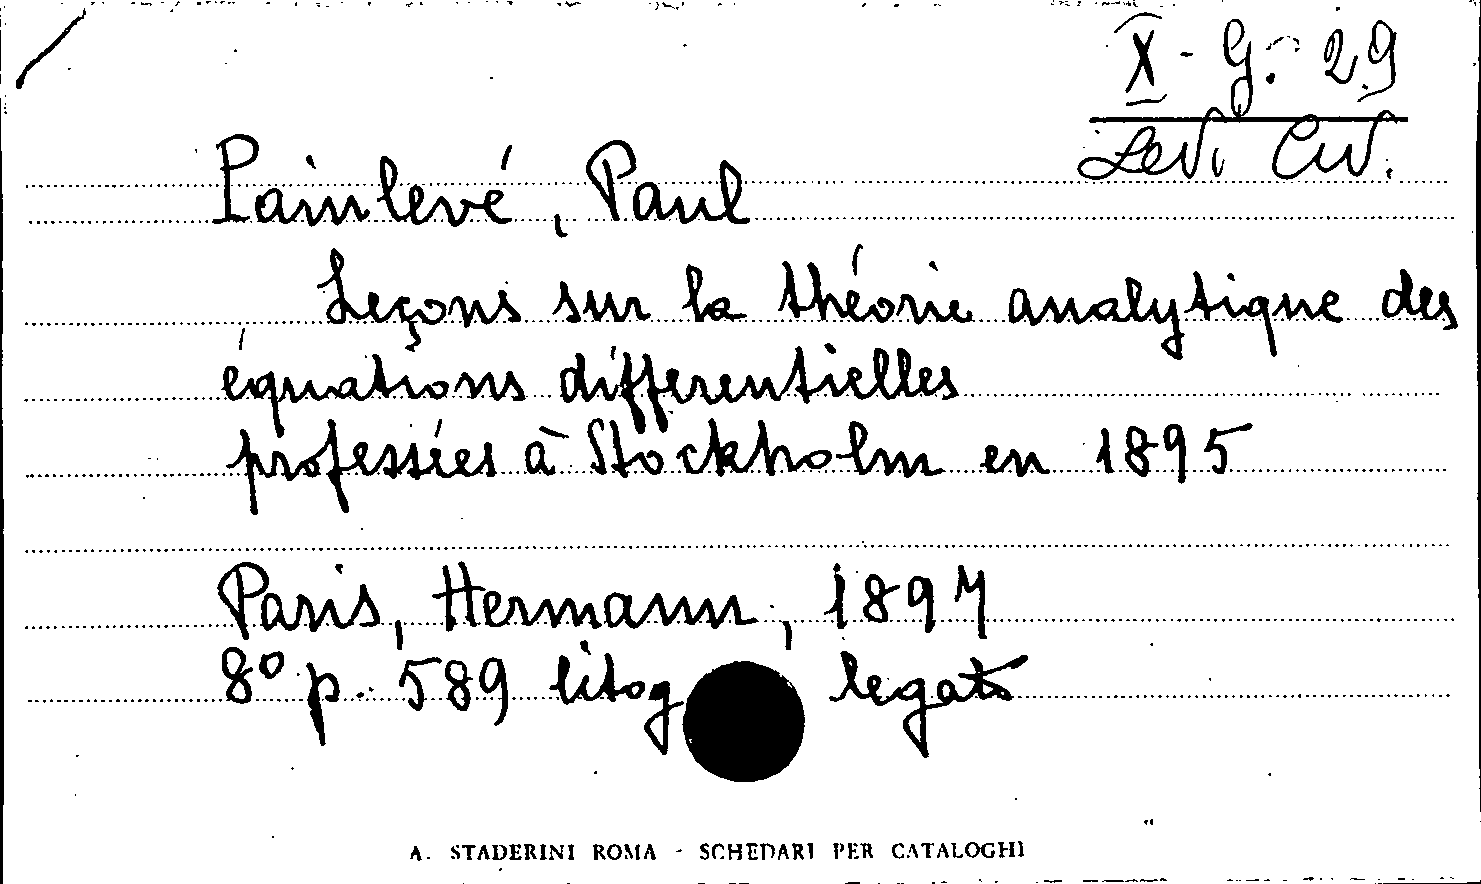 X - G. - 29
Levi Civ.
Painlevé, Paul
Leçons sur la théorie analytique des
équations différentielles
professées à Stockholm en 1895
Paris, Hermann, 1897
8° p. 589 litog legato
A. STADERINI ROMA - SCHEDARI PER CATALOGHI